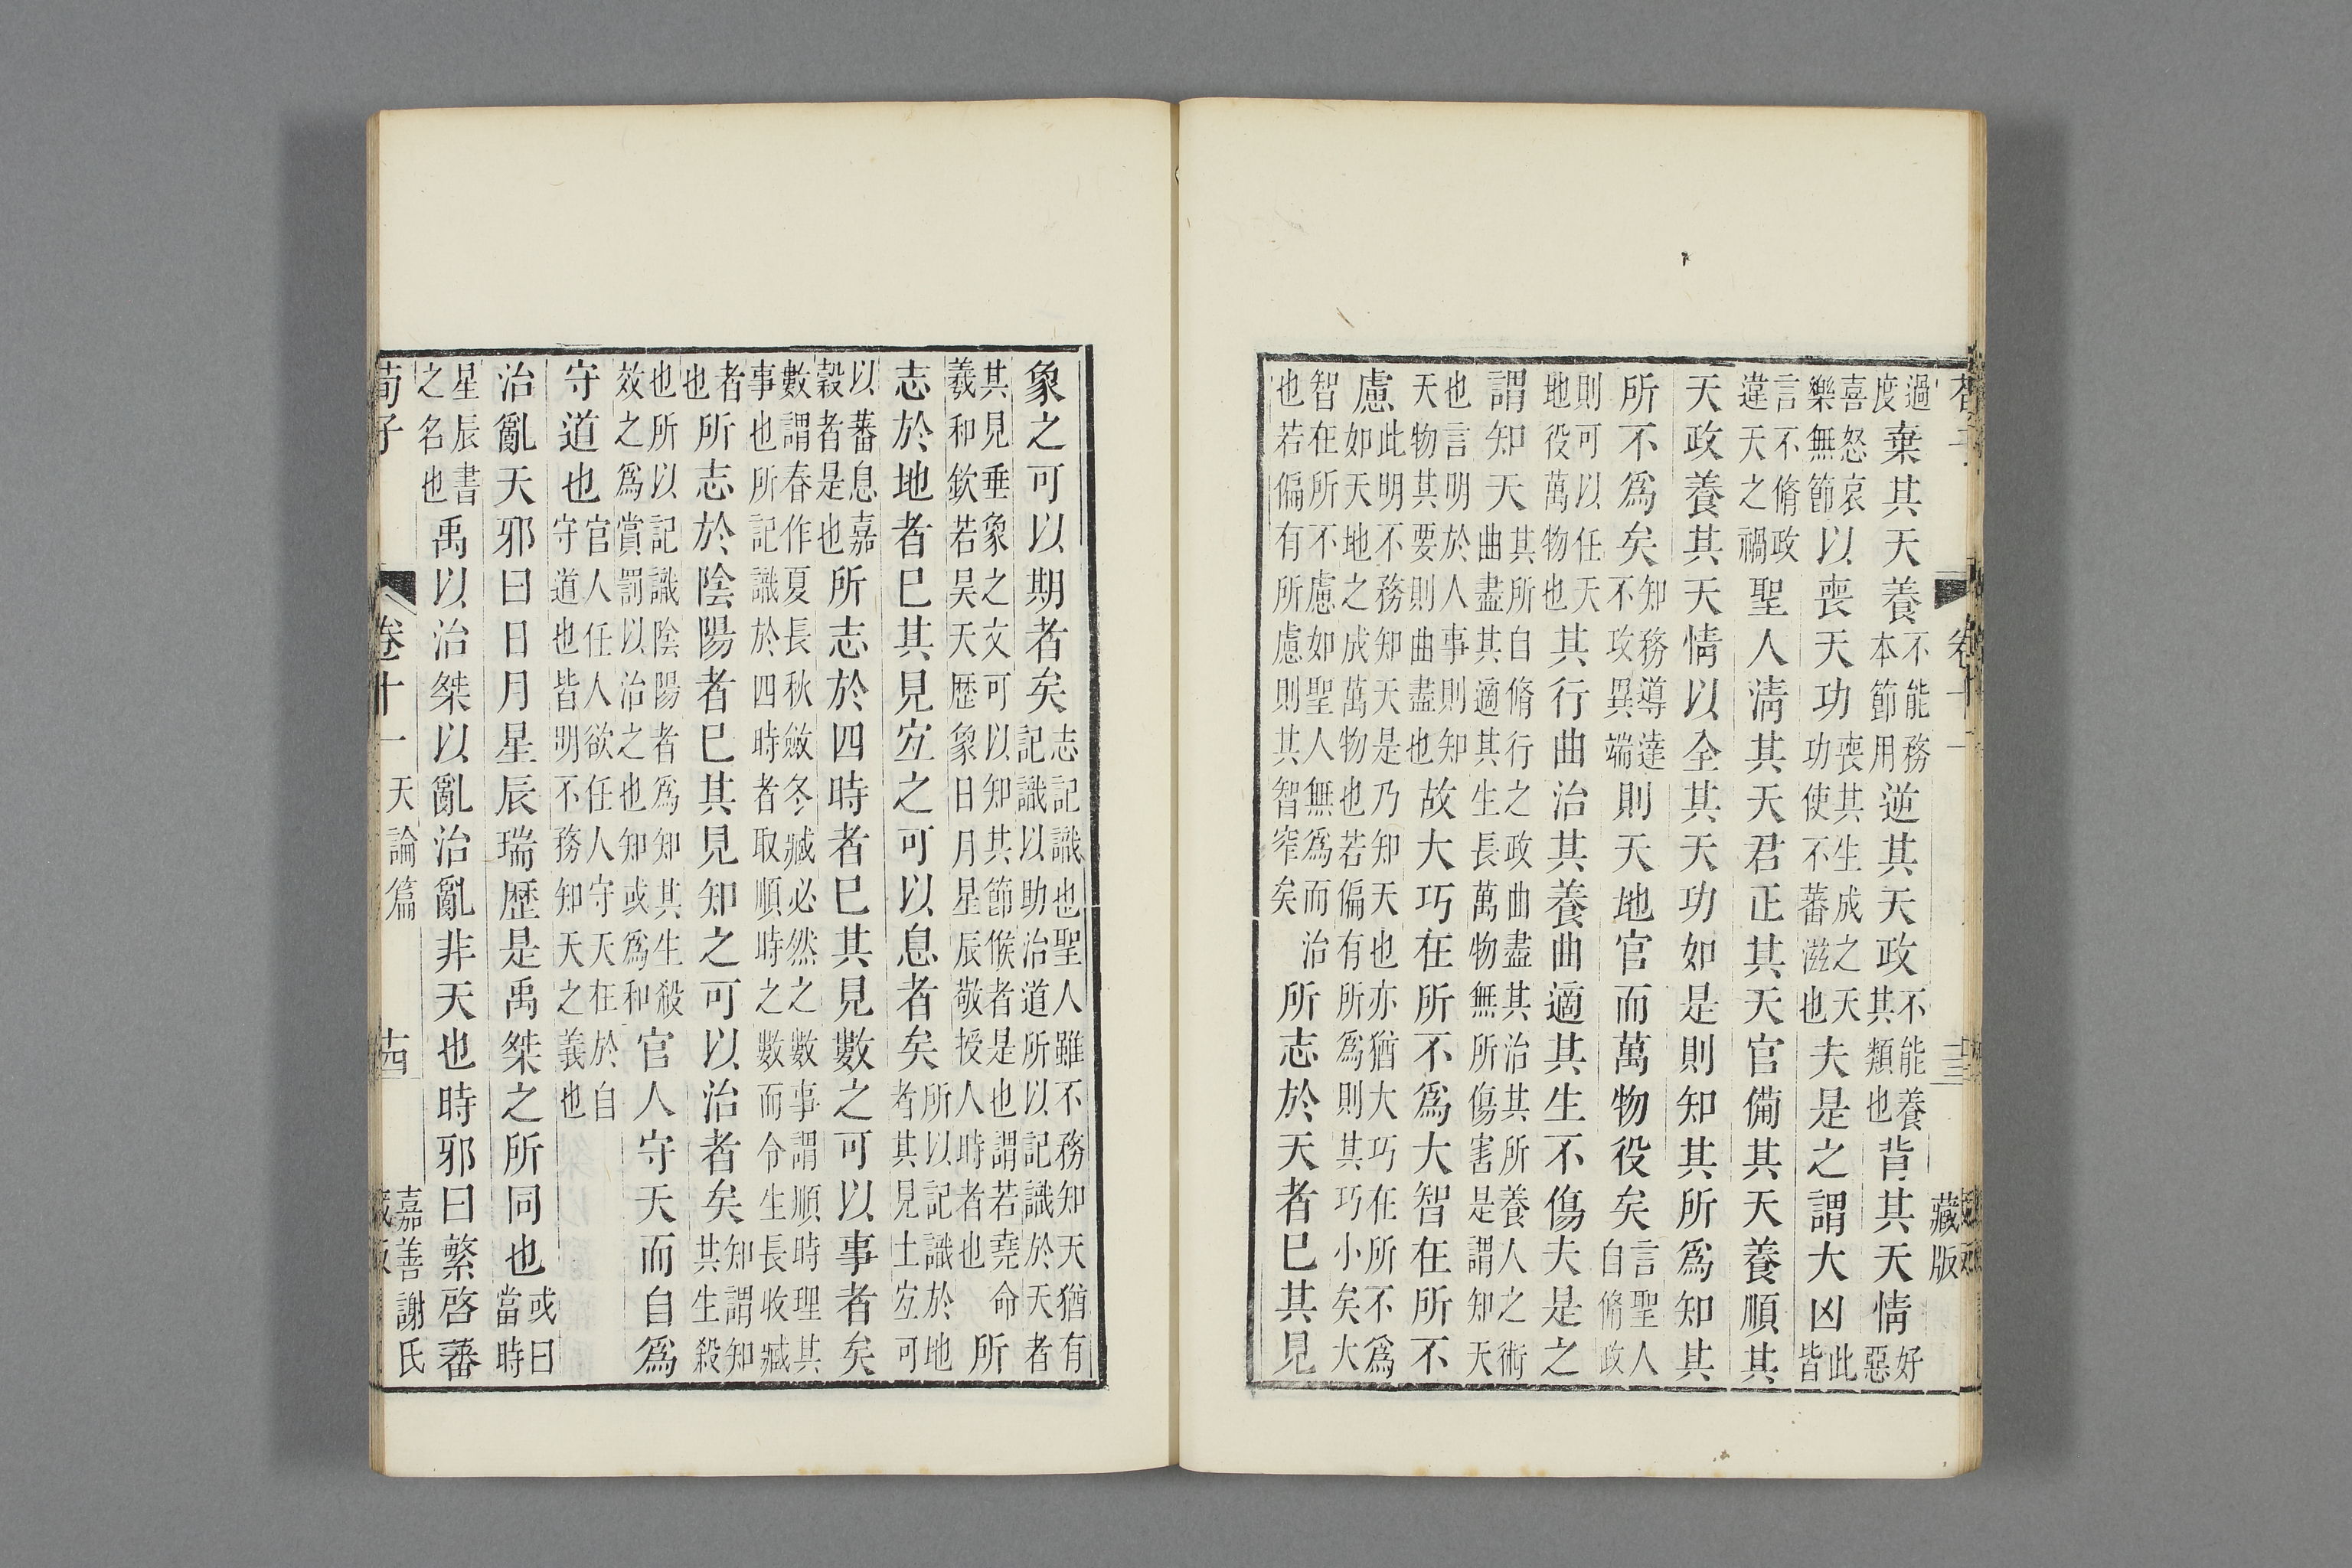 卷十一 十三 藏版
過度棄其天養不能務本節用逆其天政不能養其類也背其天情好惡
喜怒哀樂無節以喪天功喪其生成之天功使不蕃滋也夫是之謂大凶此皆
言不脩政違天之禍聖人淸其天君正其天官備其天養順其
天政養其天情以全其天功如是則知其所爲知其
所不爲矣知務導達不攻異端則天地官而萬物役矣言聖人自脩政
則可以任天地役萬物也其行曲治其養曲適其生不傷夫是之
謂知天其所自脩行之政曲盡其治其所養人之術曲盡其適其生長萬物無所傷害是謂知天
也言明於人事則知天物其要則曲盡是也故大巧在所不爲大智在所不
慮此明不務知天是乃知天也亦猶大巧在所不爲如天地之成萬物也若偏有所爲則其巧小矣大
智在所不慮如聖人無爲而治也若偏有所慮則其智窄矣所志於天者已其見
象之可以期者矣志記識也聖人雖不務知天猶有記識以助治道所以記識於天者
其見垂象之文可以知其節候者是也謂若堯命羲和欽若昊天歷象日月星辰敬授人時者也所
志於地者已其見宐之可以息者矣所以記識於地者其見土宐可
以蕃息嘉穀者是也所志於四時者已其見數之可以事者矣
數謂春作夏長秋斂冬藏必然之數事謂順時理其事也所記識於四時者取順時之數而令生長收藏
者也所志於陰陽者已其見知之可以治者矣知謂知其生殺
也所以記識陰陽者爲知其生殺效之爲賞罰以治之也知或爲和官人守天而自爲
守道也官人任人欲任人守天在於自守道也皆明不務知天之義也
治亂天邪曰日月星辰瑞歷是禹桀之所同也或曰當時
星辰書之名也禹以治桀以亂治亂非天也時邪曰繁啓蕃
荀子 卷十一 天論篇 十四 嘉善謝氏藏版